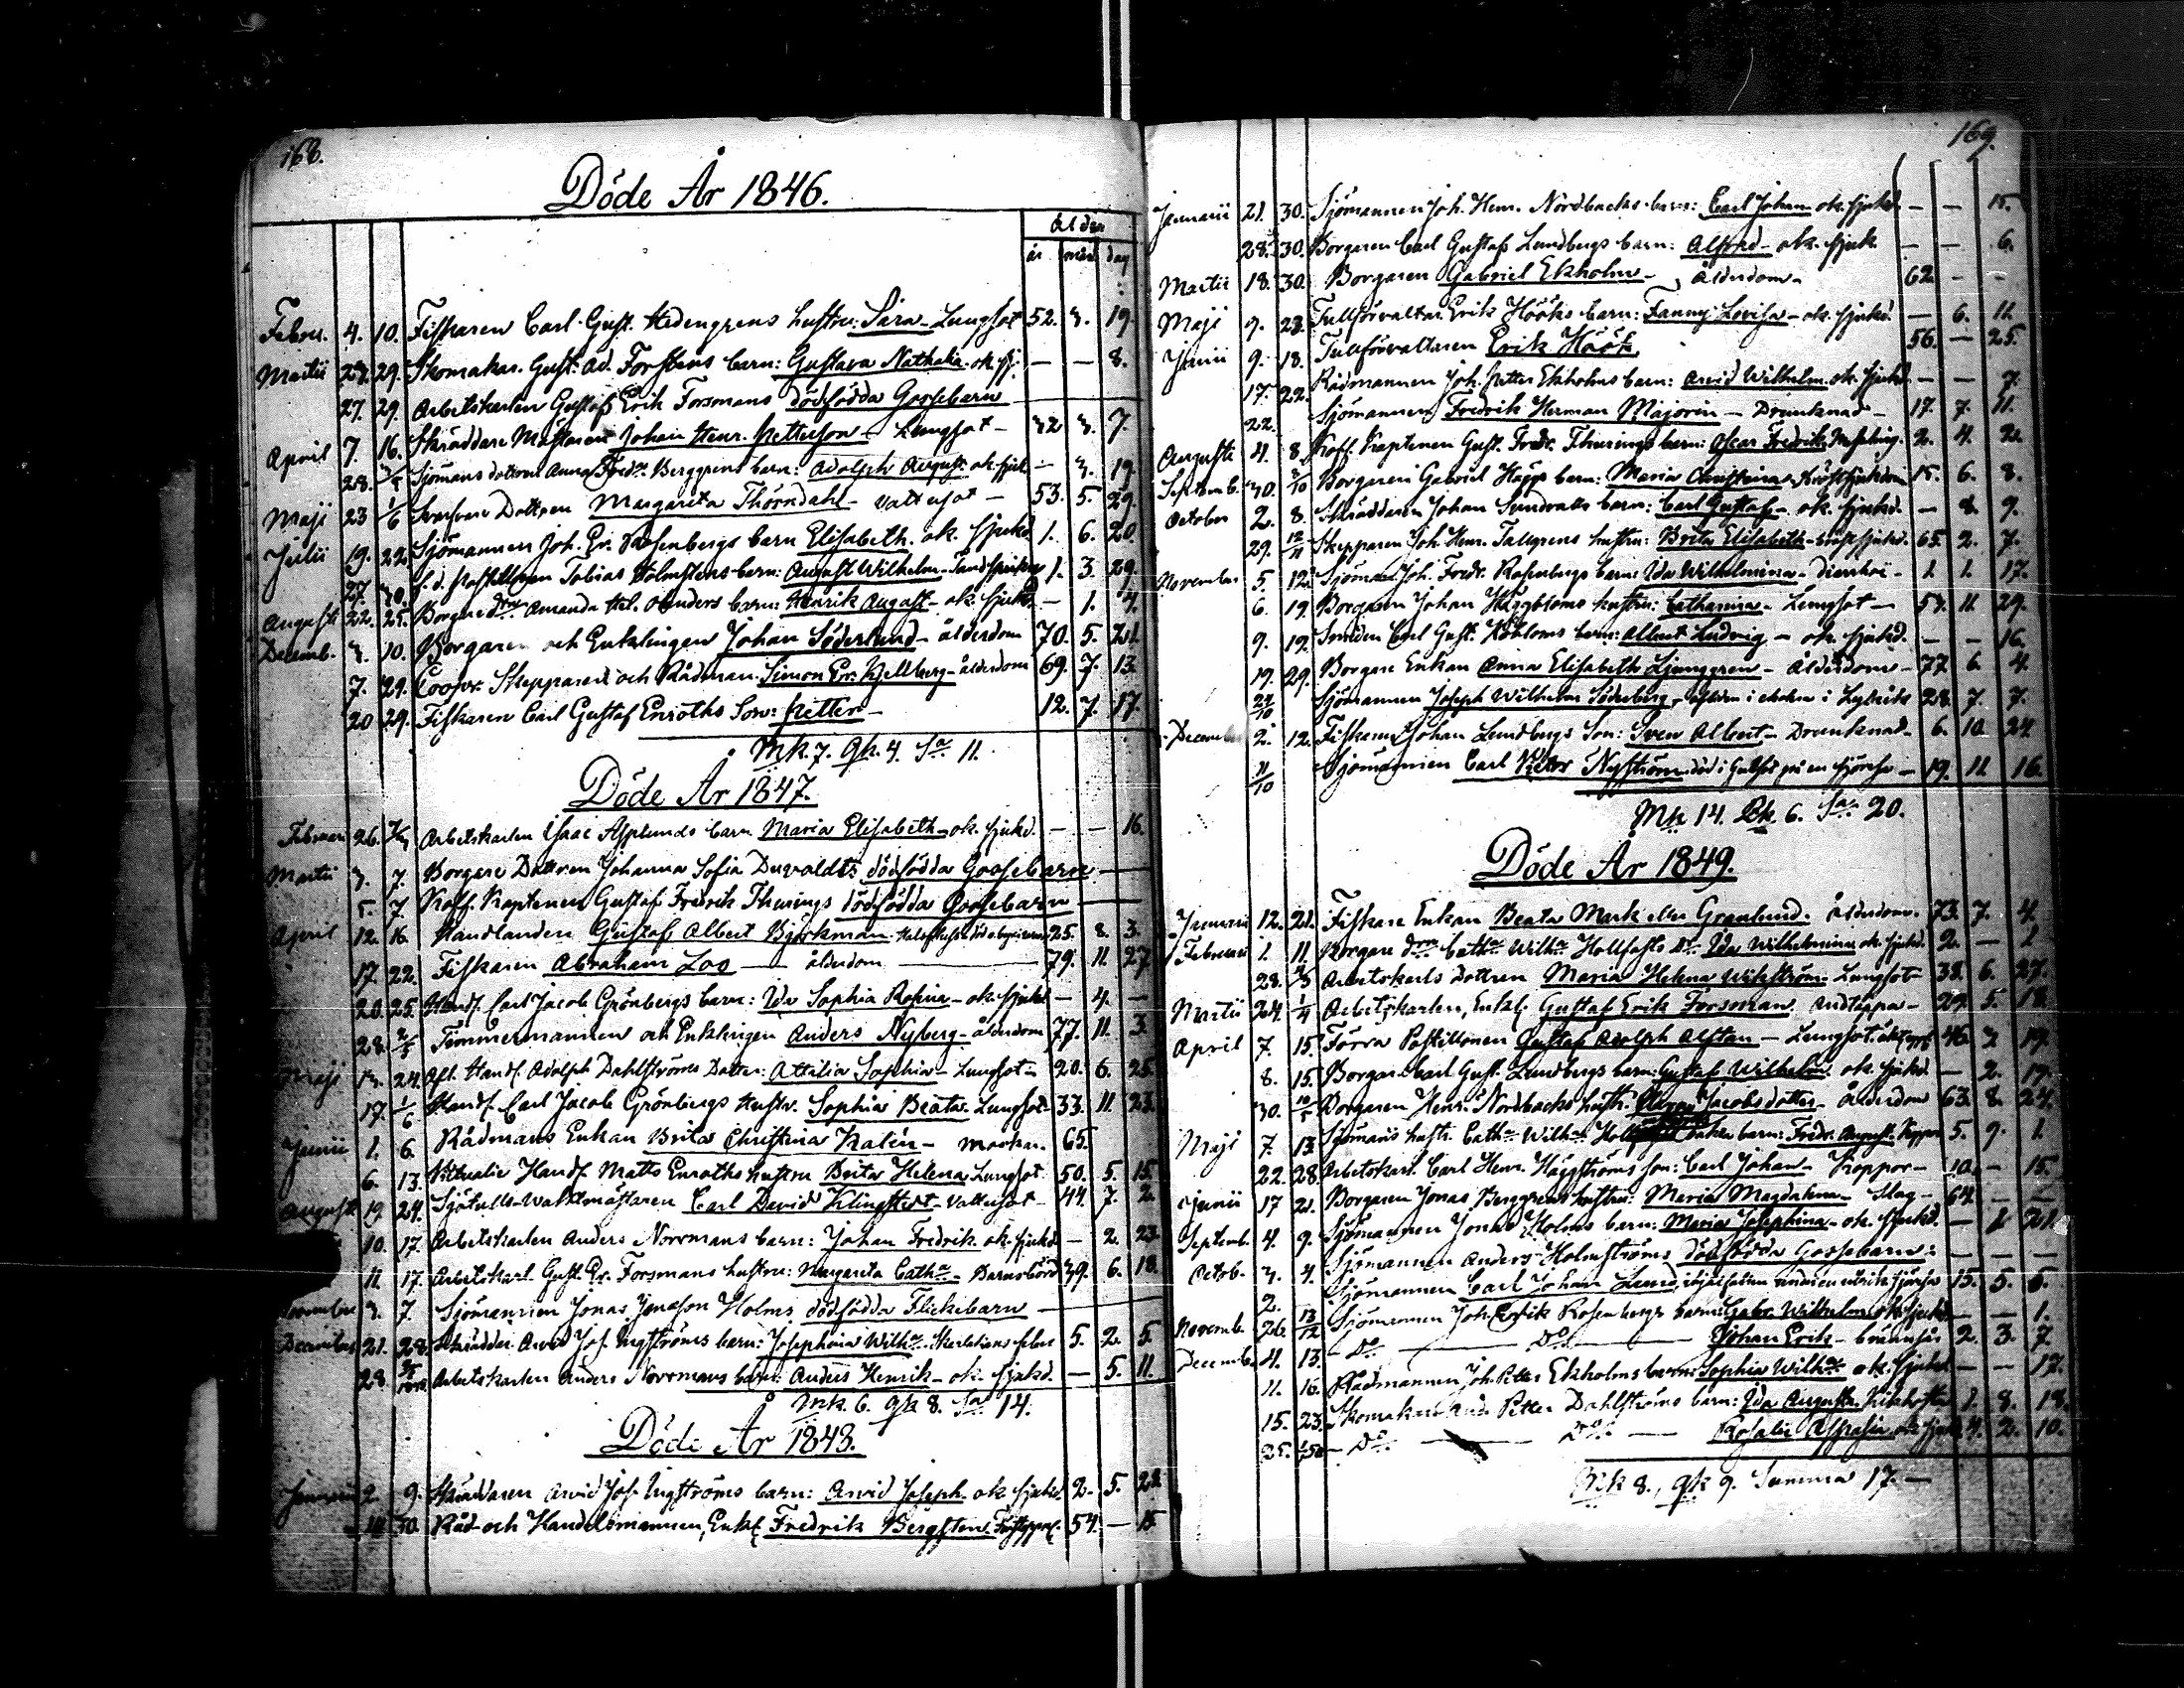 168.
Döde År 1846.
Ålder
år mån dag
Febru. 4. 10. Fiskaren Carl Gust. Hedengrens hustru: Sara - Lungsot 52. 3. 19.
Martii 23. 29. Skomakar. Gust. Ad. Forstens barn: Gustava Nathalia ok. sj. — — 8.
27. 29. Arbetskarlen Gustaf Erik Forsmans dödfödda Gossebarn
April 7. 16. Skräddare Mästaren Johan Henr. Petterson - Lungsot - 32 3. 7.
28. Sjömans dottren Anna Fred. Berggrens barn: Adolph August ok. sjuk — 3. 19.
Maji 23 1/6 Dottren Margareta Thorndahl - Vattusot - 53. 5. 29.
Julii 19. 22. Sjömannen Joh. Er. Rosenbergs barn Elisabeth. ok. sjukd. 1. 6. 20.
27. 30. f.d. Postillionen Tobias Holmstens barn: August Wilhelm - 1. 3. 29.
Augusti 22. 25. Borgare Amanda Hel. barn: Henrik August - ok. sjukd. — 1. 4.
Decemb. 3. 10. Borgaren och Enklingen Johan Söderlund - ålderdom 70. 5. 21.
7. 29. Skepparen och Rådman Simon Er. Kjellberg - ålderdom 69. 7. 13.
20 29. Fiskaren Carl Gustaf Enroths Son: Petter - 12. 7. 17.
Mk. 7. Qk. 4. Sa 11.
Döde År 1847.
Februari 26. Arbetskarlen Isaac Asplunds barn Maria Elisabeth - ok. sjukd. — — 16.
Martii 3. 7. Borgare Dottren Johanna Sofia Duvaldts dödfödda Gossebarn —
5. 7. Koff. Kaptenen Gustaf Fredrik Thurings dödfödda Gossebarn —
April 12. 16. Handlanden Gustaf Albert Björkman 25. 8. 3.
17. 22. Fiskaren Abraham Loo — ålderdom — 79. 11. 27.
20. 25. Handl. Carl Jacob Grönbergs barn: Ida Sophia Rosina - ok. sjukd. — 4. —
28. 2/5 Timmermannen och Enklingen Anders Nyberg - ålderdom 77. 11. 3.
Maji 13. 24. Afl. Handl. Adolph Dahlströms Dotter: Attilia Sophia - Lungsot - 20. 6. 25.
17. 1/6 Handl. Carl Jacob Grönbergs hustru Sophia Beata Lungsot 33. 11. 23.
Junii 1. 6. Rådmans Enkan Brita Christina Kalén - 65.
6. 13. Victualie Handl. Matts Enroths hustru Brita Helena Lungsot 50. 5. 15.
Augusti 19 24. Sjötulls-Vaktmästaren Carl David Klingstedt - Vattusot - 44. 7. 2.
10. 17. Arbetskarlen Anders Norrmans barn: Johan Fredrik ok. sjukd. — 2. 23.
11. 17. Arbetskarl. Gust. Er. Forsmans hustru: Margareta Catha - Barnsbörd 39. 6. 18.
November 3. 7. Sjömannen Jonas Jonason Holms dödfödda Flickebarn —
December 21. 28. Skräddar. Arvid Jos. Ingströms barn: Josephina Wilha. Skarlakans feber 5. 2. 5.
28. Arbetskarlen Anders Norrmans barn: Anders Henrik - ok. sjukd. — 5. 11.
Mk. 6. Qk 8. Sa 14.
Döde År 1848.
Januarii 2. 9. Skräddaren Arvid Jos. Ingströms barn: Arvid Joseph ok sjukd. 2. 5. 28.
30. Råd- och Handelsmannen, Enkl. Fredrik Bergsten 54. — 15.
169.
Januarii 21. 30. Sjömannen Joh. Henr. Nordbacks barn: Carl Johan ok. sjukd. — — 15.
28. 30. Borgaren Carl Gustaf Lundbergs barn: Alfred - ok. sjuk. — — 6.
Martii 18. 30. Borgaren Gabriel Ekholm - ålderdom - 62. — —
Maji 9. 23. Tullförvaltar. Erik Hööks barn: Fanny Lovisa - ok. sjukd. — 6. 11.
Junii 9. 18. Tullförvaltaren Erik Höök 56. — 25.
17. 22. Rådmannen Joh. Petter Ekholms barn: Arvid Wilhelm ok. sjukd. — — 7.
22. Sjömannen Fredrik Herman Majorin - Drunknad - 17. 7. 11.
Augusti 4. 8. Koff. Kaptenen Gust. Fredr. Thurings barn: Oscar Fredrik 2. 4. 2.
Septemb. 30. 3/10 Borgaren Gabriel Häggs barn: Maria Christina - 15. 6. 8.
October 2. 8. Skräddaren Johan Sundvalls barn: Carl Gustaf - ok. sjukd. — 8. 9.
29. 12/11 Skepparen Joh. Henr. Tallgrens hustru: Brita Elisabeth - 65. 2. 7.
November 5. 12. Sjöman Joh. Fredr. Rosenbergs barn: Ida Wilhelmina - Diarrhoé - 1. 1. 17.
6. 19. Borgaren Johan Häggbloms hustru: Catharina - Lungsot - 53. 11. 29.
9. 19. Smeden Carl Gust. barn: Albert Ludvig - ok. sjukd. — — 16.
19. 29. Borgare Enkan Anna Elisabeth Ljunggren - Ålderdom - 77. 6. 4.
24/10 Sjömannen Joseph Wilhelm Söderberg - i Lybeck 28. 7. 7.
December 2. 12. Fiskaren Johan Lundbergs Son: Sven Albert - Drunknad - 6. 10. 24.
11/10 Sjömannen Carl Petter Nyström död i på en sjöresa - 19. 11. 16.
Mk 14. Qk 6. Sa 20.
Döde År 1849.
Januarii 12. 21. Fiskare Enkan Beata Mark eller Granlund. ålderdom. 73. 7. 4.
Februarii 1. 11. Borgare Catha Wilha Ida Wilhelmina ok. sjukd. 2. — 1.
28. Arbetskarls Dottren Maria Helena Wikström - Lungsot 38. 6. 27.
Martii 24. 1/4 Arbetskarlen, Enkl. Gustaf Erik Forsman. Andtäppa - 29. 5. 18.
April 7. 15. Förra Postillionen Gustaf Adolph Alftan - Lungsot 46. 3. 19.
8. 15. Borgar. Carl Gust. Lundbergs barn: Gustaf Wilhelm ok. sjukd. — 2. 17.
30. 10/5 Borgaren Henr. Nordbacks hustr. Jacobsdotter - Ålderdom 63. 8. 24.
Maji 7. 13. Sjömans hustr. Catha Wilha barn: Fredr. August. Koppor 5. 9. 1.
22. 28. Arbetskarl. Carl Henr. Häggströms son: Carl Johan - Koppor - 10. — 15.
Junii 17 21. Borgaren Jonas Berggrens hustru: Maria Magdalena - Slag - 64. — —
Septemb. 4. 9. Sjömannen Jonas Holms barn: Maria Josephina - ok. sjukd. — 1. 21.
Octob. 3. 4. Sjömannen Anders Holmströms dödfödda Gossebarn: — —
2. Sjömannen Carl Johan Lund, under en utrikes sjöresa 15. 5. 6.
Novemb. 26. 13/12 Sjömannen Joh. Erik Rosenbergs barn: Gabr. Wilhelm ok. sjukd. — — 1.
Decemb. 4. 13. — Do — Do — Johan Erik - 2. 3. 7.
11. 16. Rådmannen Joh. Petter Ekholms barn: Sophia Wilha ok. sjukd. — — 17.
15. 23. Skomakaren And. Petter Dahlströms barn: Ida Augusta. Kikhosta 1. 8. 18.
25. — Do — Do — Rosalie Aspasia ok sjukd. 4. 2. 10.
Mk 8., Qk 9. Summa 17. —